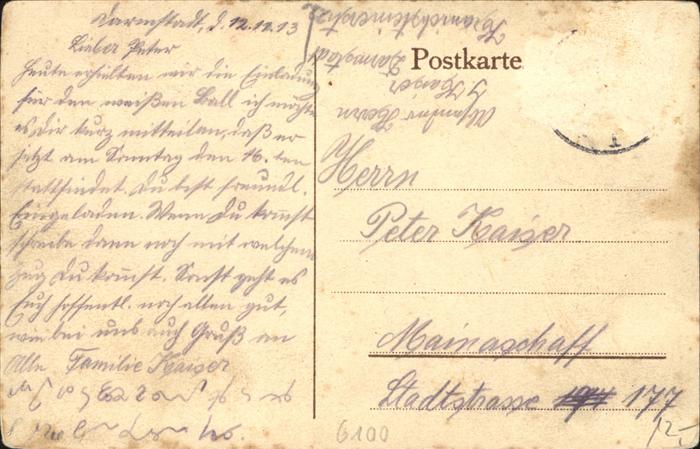 Darmstadt, d. 12.11.13
Lieber Peter
Heute erhielten wir die Einladung
für den weißen Ball ich möchte
es dir kurz mitteilen, daß er
jetzt am Sonntag den 16. ten
stattfindet. Du bist freundl.
Eingeladen. Wenn Du kommst
schreibe dann noch mit welchem
Zug Du kommst. Sonst geht es
Euch hoffentl. noch allen gut,
wie bei uns auch Gruß an
Alle Familie Kaiser
Postkarte
Absender Herrn
J. Kaiser
Darmstadt
Herrn
Peter Kaiser
Mainaschaff
Stadtstrasse 177
6100
12,-